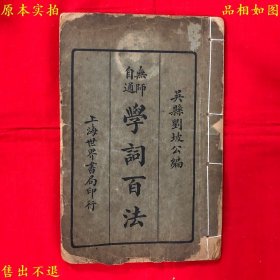 原本实拍
品相如图
吴縣劉坡公編
無師
自通
學詞百法
上海世界書局印行
售出不退